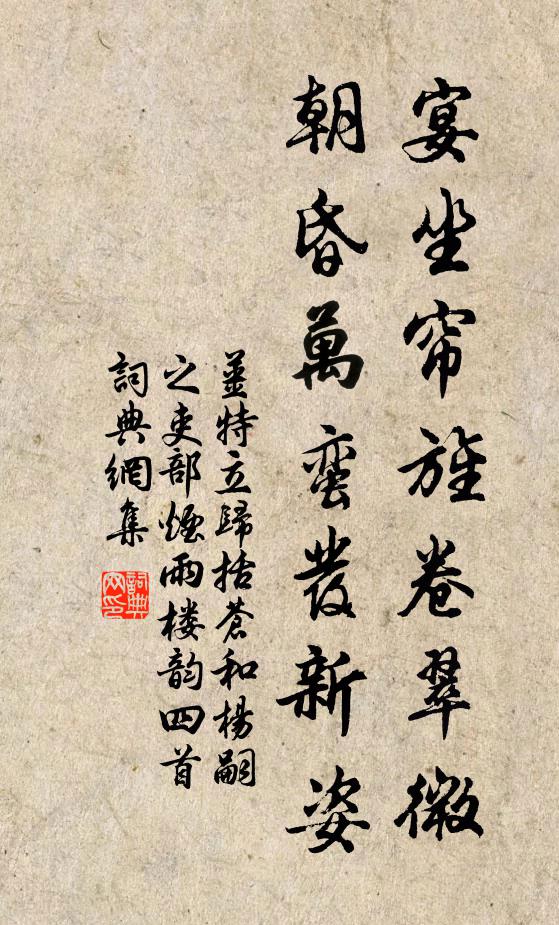 宴坐帘旌卷翠微
朝昏萬蛮發新姿
姜特立歸括蒼和楊嗣
之吏部煙雨楼韵四首
詞典網集
詞典网印